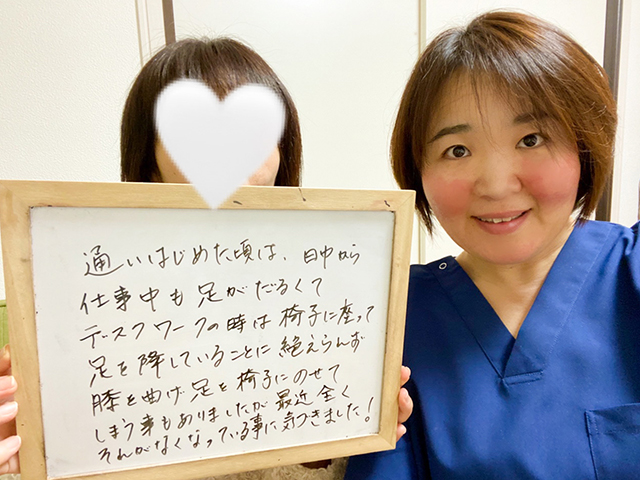 通いはじめた頃は、日中から
仕事中も足がだるくて
デスクワークの時は椅子に座って
足を降していることに絶えられず
膝を曲げ足を椅子にのせて
しまう事もありましたが最近全く
それがなくなっている事に気づきました!